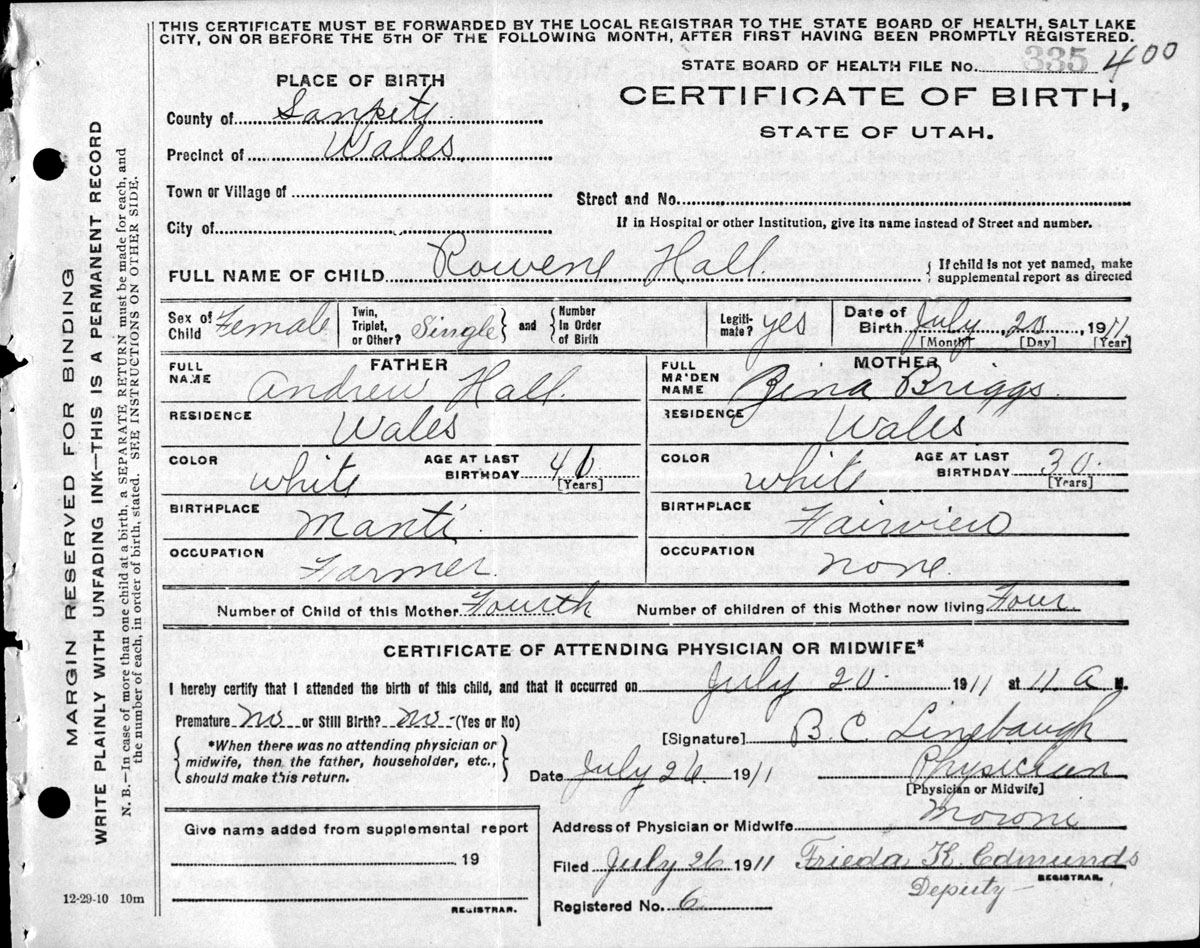 THIS CERTIFICATE MUST BE FORWARDED BY THE LOCAL REGISTRAR TO THE STATE BOARD OF HEALTH, SALT LAKE
CITY, ON OR BEFORE THE 5TH OF THE FOLLOWING MONTH, AFTER FIRST HAVING BEEN PROMPTLY REGISTERED.
MARGIN RESERVED FOR BINDING
WRITE PLAINLY WITH UNFADING INK—THIS IS A PERMANENT RECORD
N. B.—In case of more than one child at a birth, a SEPARATE RETURN must be made for each, and
the number of each, in order of birth, stated. SEE INSTRUCTIONS ON OTHER SIDE.
PLACE OF BIRTH
County of Sanpete
Precinct of Wales
Town or Village of
City of
STATE BOARD OF HEALTH FILE No. 335 400
CERTIFICATE OF BIRTH,
STATE OF UTAH.
Street and No.
If in Hospital or other Institution, give its name instead of Street and number.
FULL NAME OF CHILD Rowene Hall { If child is not yet named, make
supplemental report as directed
Sex of Child Female Twin, Triplet, or Other? Single } and { Number In Order of Birth Legiti- mate? yes Date of Birth July, 20, 1911
[Month] [Day] [Year]
FATHER
FULL NAME Andrew Hall
RESIDENCE Wales
COLOR White AGE AT LAST BIRTHDAY 40
[Years]
BIRTHPLACE Manti
OCCUPATION Farmer
MOTHER
FULL MAIDEN NAME Zina Briggs
RESIDENCE Wales
COLOR White AGE AT LAST BIRTHDAY 30
[Years]
BIRTHPLACE Fairview
OCCUPATION None
Number of Child of this Mother Fourth Number of children of this Mother now living Four
CERTIFICATE OF ATTENDING PHYSICIAN OR MIDWIFE*
I hereby certify that I attended the birth of this child, and that it occurred on July 20 1911 at 11 A M.
Premature No or Still Birth? No (Yes or No)
{ *When there was no attending physician or
midwife, then the father, householder, etc.,
should make this return. }
[Signature] B. C. Linebaugh
Date July 26 1911 Physician
[Physician or Midwife]
Give name added from supplemental report
19
REGISTRAR.
Address of Physician or Midwife Moroni
Filed July 26 1911 Frieda K. Edmunds
REGISTRAR.
Deputy
Registered No. 6
12-29-10 10m